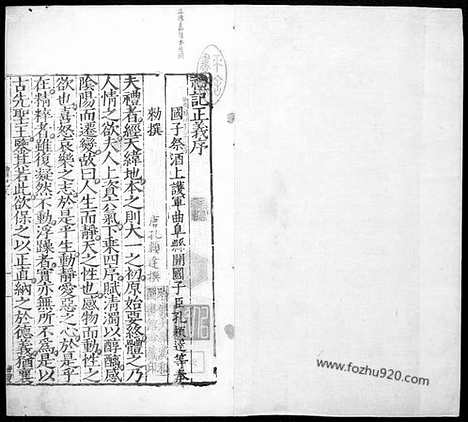 禮記正義序
國子祭酒上護軍曲阜縣開國子臣孔穎達等奉
勑撰
唐孔穎達撰
夫禮者經天緯地本之則大一之初原始要終體之乃
人情之欲夫人上資六氣下乗四序賦清濁以醇醨感
陰陽而遷變故曰人生而靜天之性也感物而動性之
欲也喜怒哀樂之志於是乎生動靜愛惡之心於是乎
在精粹者雖復凝然不動浮躁者實亦無所不爲是以
古先聖王鑒其若此欲保之以正直納之於德義猶襄
www.fozhu920.com